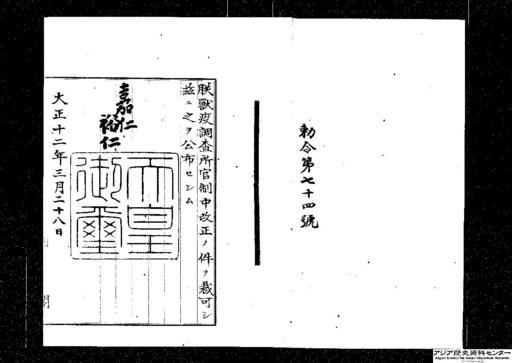 勅令第七十四號
朕獸疫調査所官制中改正ノ件ヲ裁可シ
玆ニ之ヲ公布セシム
嘉仁
裕仁
天皇御璽
大正十二年三月二十八日
アジア歴史資料センター
Japan Center for Asian Historical Records